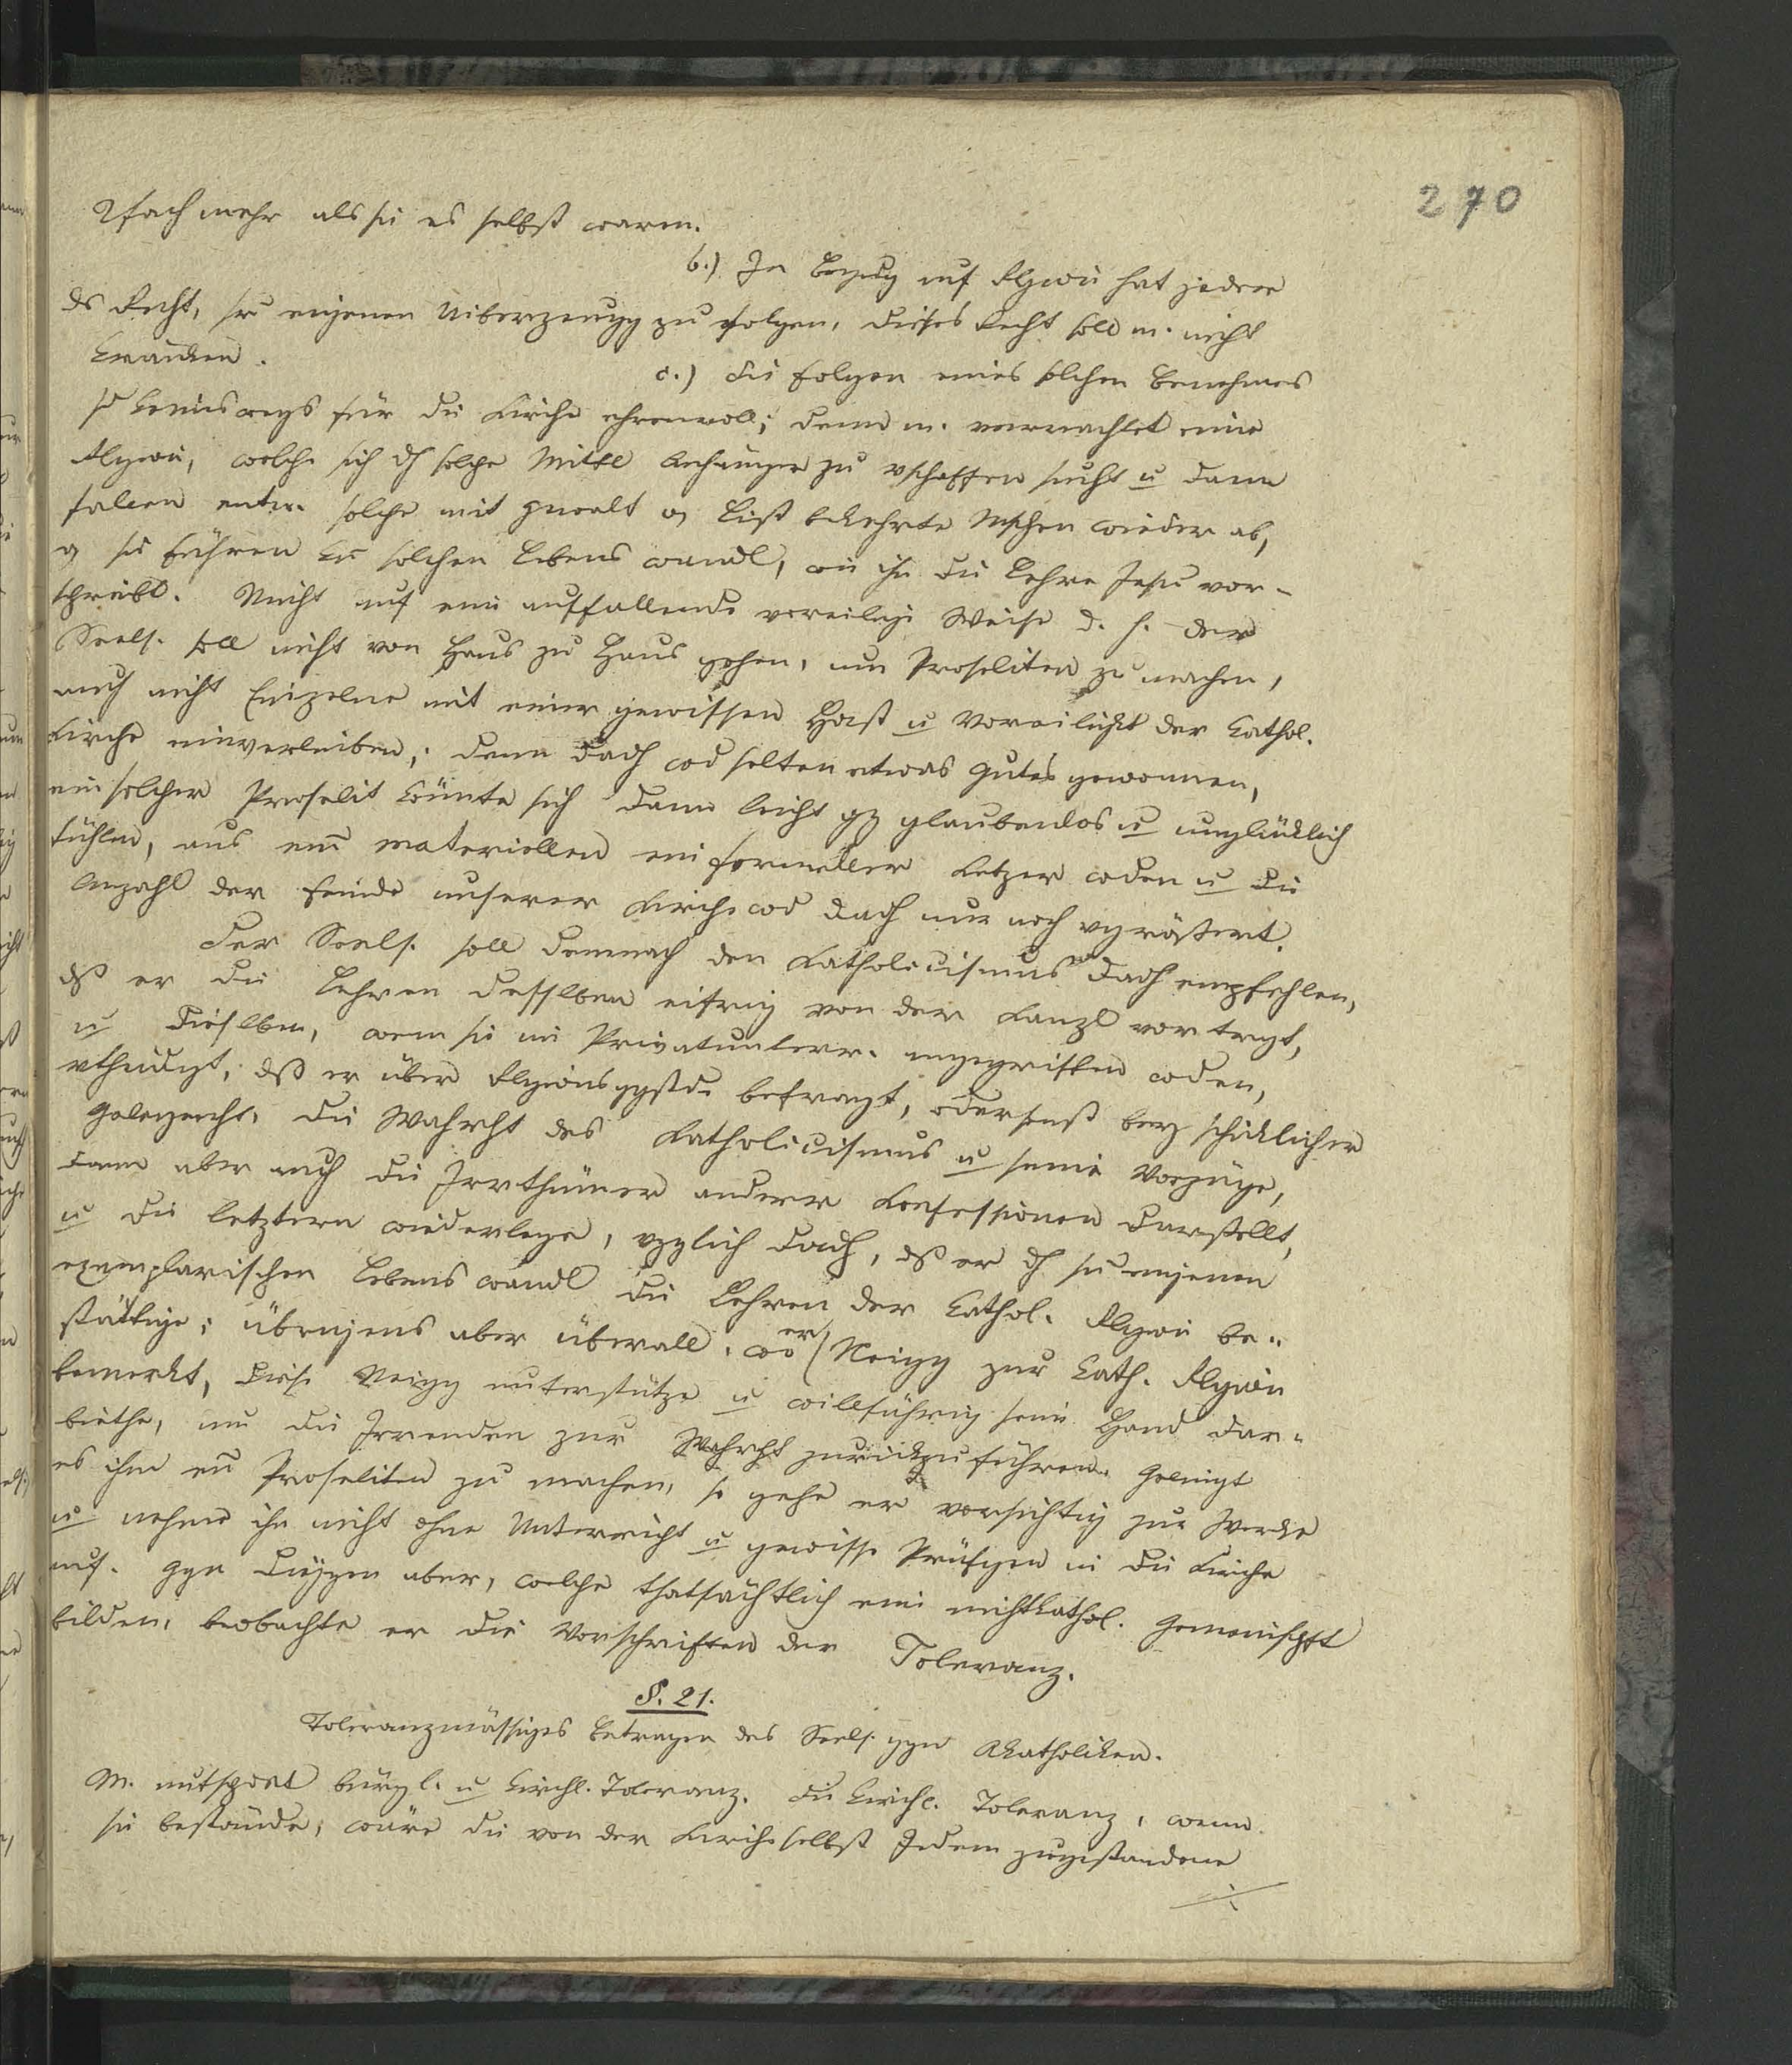 270
2fach mehr als sie es selbst waren.
b.) In Bezug auf Rlgion hat jeder
ds Recht, sr eigenen Uiberzeugg zu folgen, dieses Recht soll m. nicht
kränken.
c.) Die Folgen eines solchen Benehmens
sd keineswegs für die Kirche ehrenvoll; denn m. verachtet eine
Rlgion, welche sich dh solche Mittl Anhänger zu vschaffen sucht u dann
fallen entw. solche mit Gwalt o List bekehrte Mschen wieder ab,
o sie führen kn solchen Lebenswandl, wie ihn die Lehre Jesu vor-
schreibt. Nicht auf eine auffallende voreilige Weise d. h. der
Seels. soll nicht von Haus zu Haus gehen, um Proseliten zu machen,
auch nicht Einzelne mit einer gewissen Hast u Voreiligkt der kathol.
Kirche einverleiben; denn dadh wd selten etwas Gutes gewonnen,
ein solcher Proselit könnte sich dann leicht gz glaubenlos u unglücklich
fühlen, aus em materiellen ein formeller Ketzer wden u die
Anzahl der Feinde unserer Kirche wd dadh nur noch vgrößert.
Der Seels. soll demnach den Katholicismus dadh empfehlen,
dß er die Lehren desselben eifrig von der Kanzl vortragt,
u dieselben, wenn sie im Privatunterr. angegriffen wden,
vtheidigt, dß er über Rlgionsggstde befragt, oder sonst bey schicklicher
Gelegenht, die Wahrht des Katholicismus u seine Vorzüge,
dann aber auch die Irrthümer anderer Konfessionen darstellt,
u die letztern wiederlege, vzglich dadh, dß er dh sn eigenen
exemplarischen Lebenswandl die Lehren der kathol. Rlgion be-
stättige; übrigens aber überall, wo er Neigg zur kath. Rlgion
bemerkt, diese Neigg unterstütze u willfährig seine Hand dar-
biethe, um die Irrenden zur Wahrht zurückzuführen. Gelingt
es ihm en Proseliten zu machen, so gehe er vorsichtig zur Werke
u nehme ihn nicht ohne Unterricht u gewisse Prüfgen in die Kirche
auf. Ggn diejgen aber, welche thatsächtlich eine nichtkathol. Gemeinschft
bilden, beobachte er die Vorschriften der Toleranz.
§. 21.
Toleranzmässiges Betragen des Seels. ggn Akatholiken.
M. untschdet bürgl. u kirchl. Toleranz. Die kirchl. Toleranz, wenn
sie bestände, wäre die von der Kirche selbst Jedem zugestandene